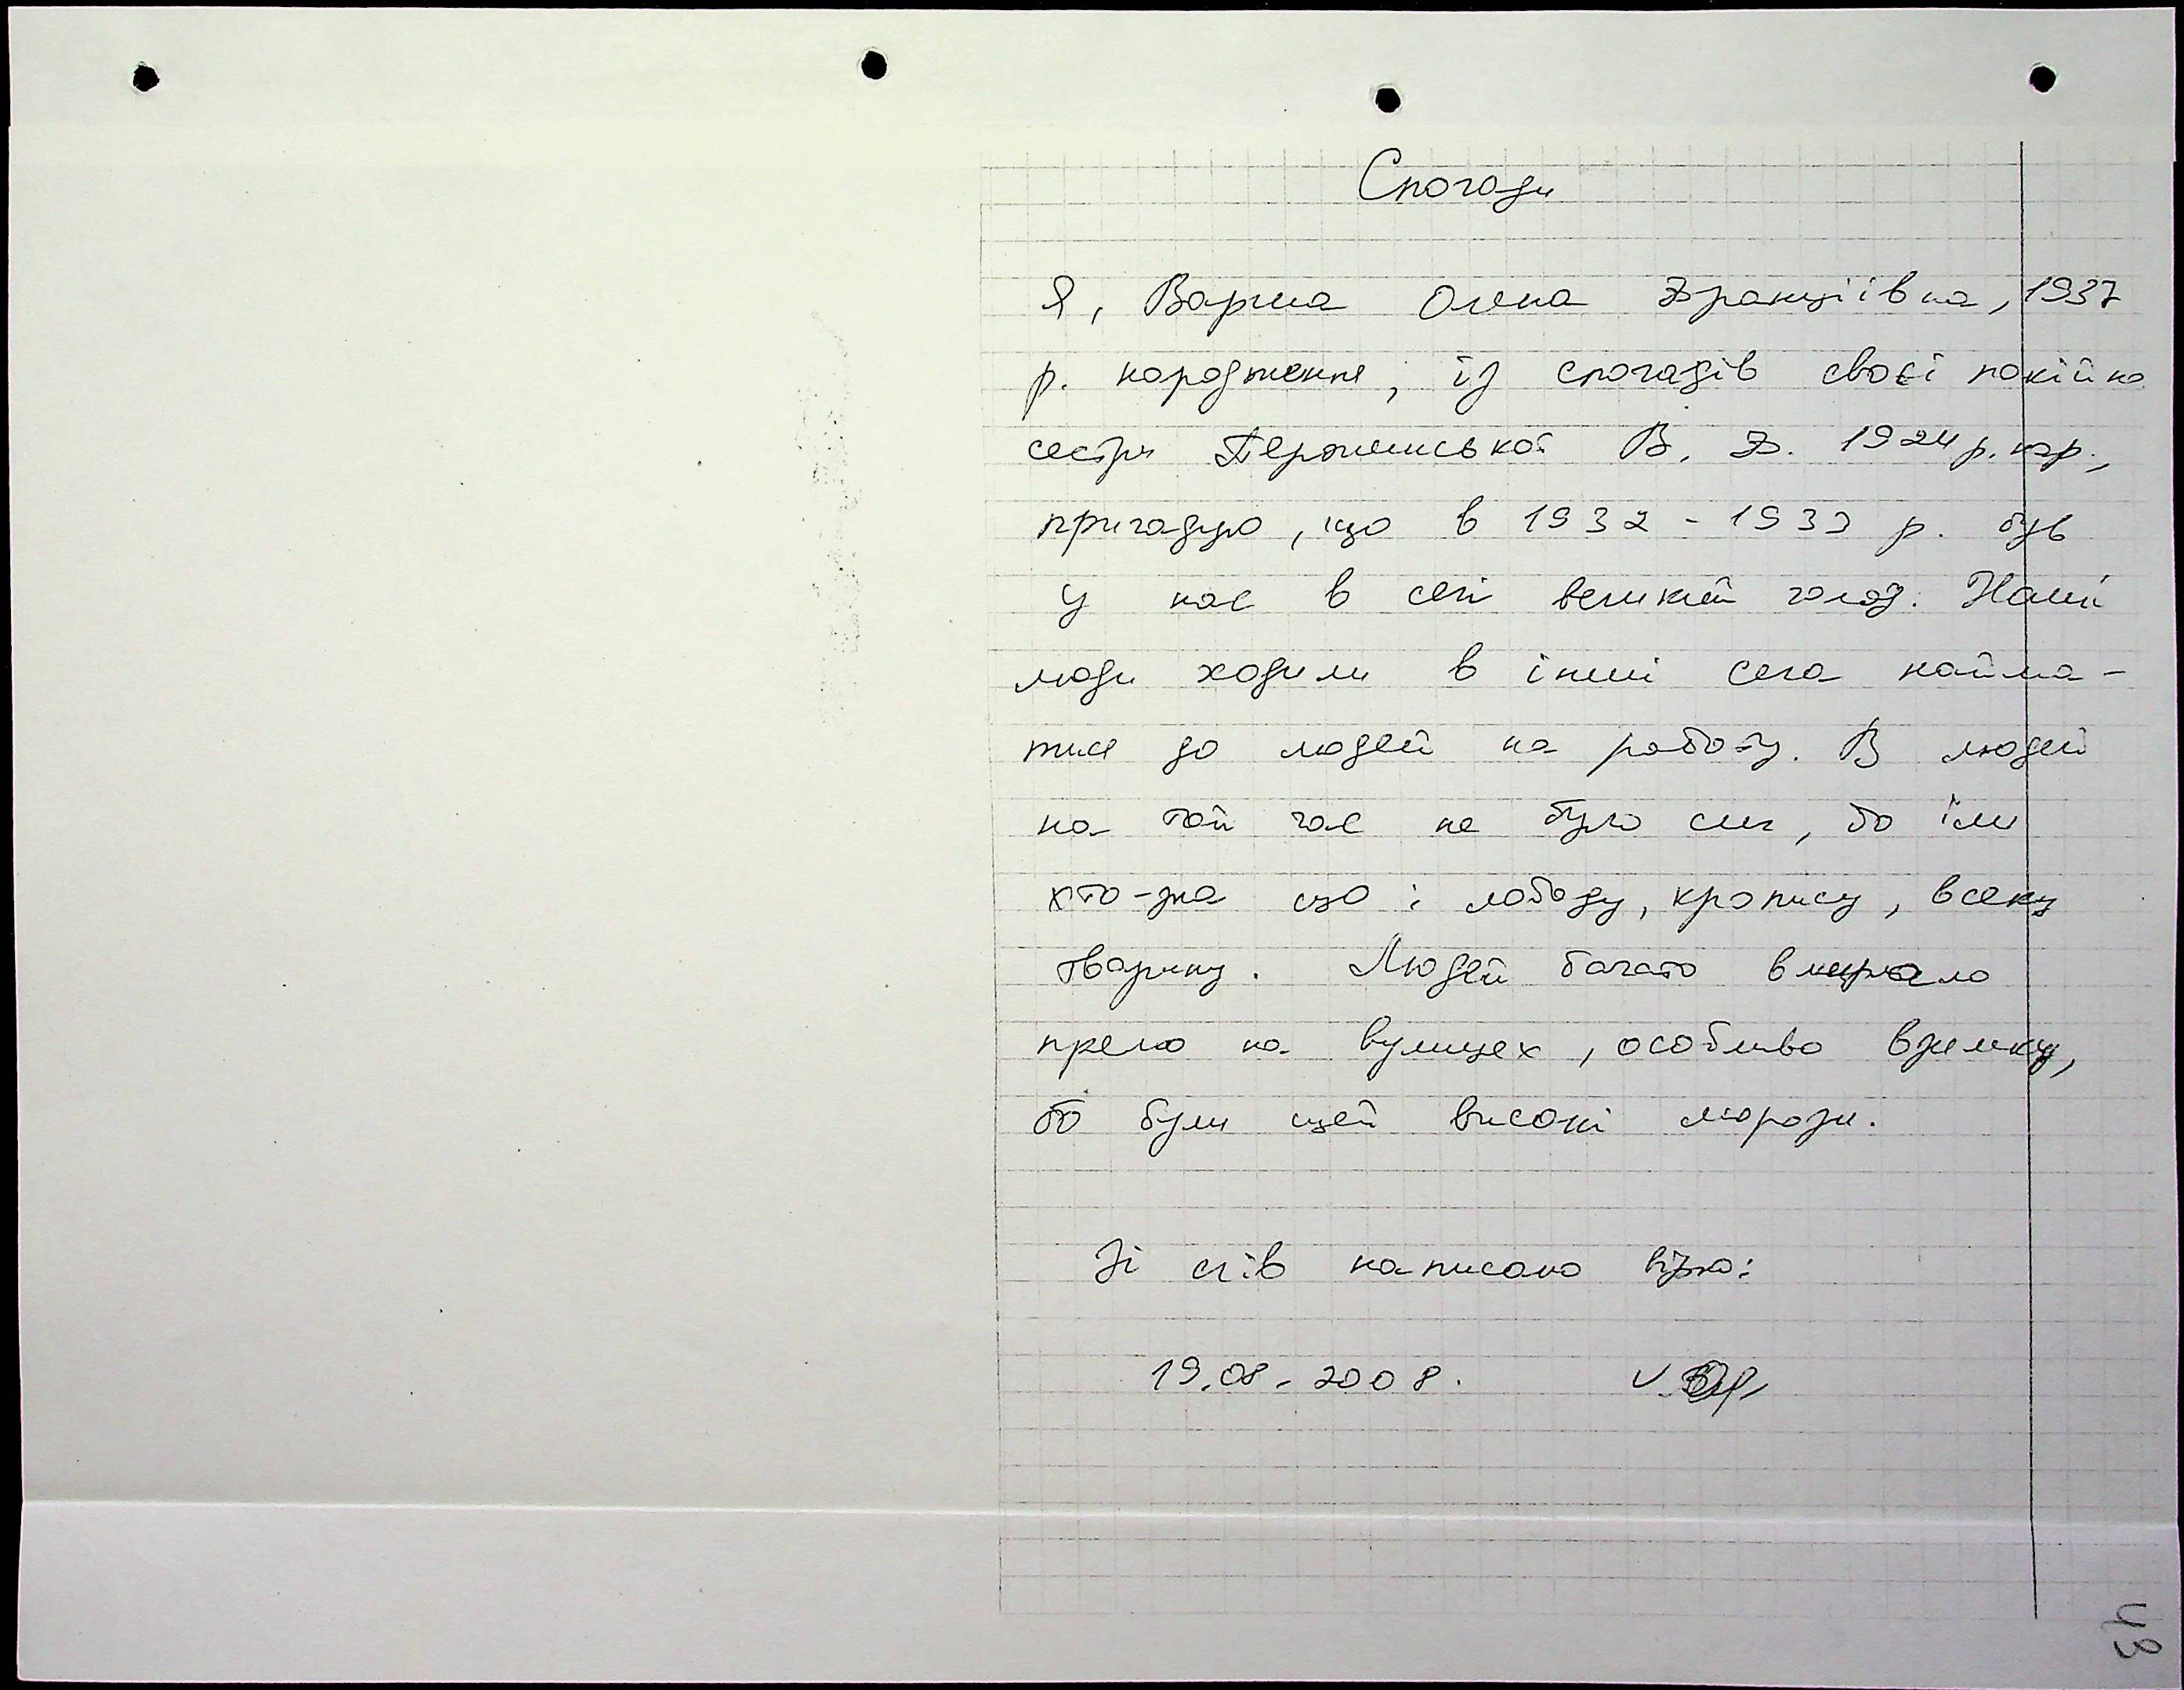 Спогади
Я, Варгла Олена Францїівна, 1937
р. народження, із спогадів своєї покійно
сестри Держинської В. Ф. 1924 р. нар.,
пригадую, що в 1932 - 1933 р. був
у нас в селі великий голод. Наші
люди ходили в інші села найма-
тися до людей на роботу. В людей
на той час не було сил, бо їли
хто-зна що і лободу, кропиву, всяку
тварину. Людей багато вмирало
прямо на вулицях, особливо взимку,
бо були щей високі морози.
Зі слів написано вірно:
19.08.2008.
43